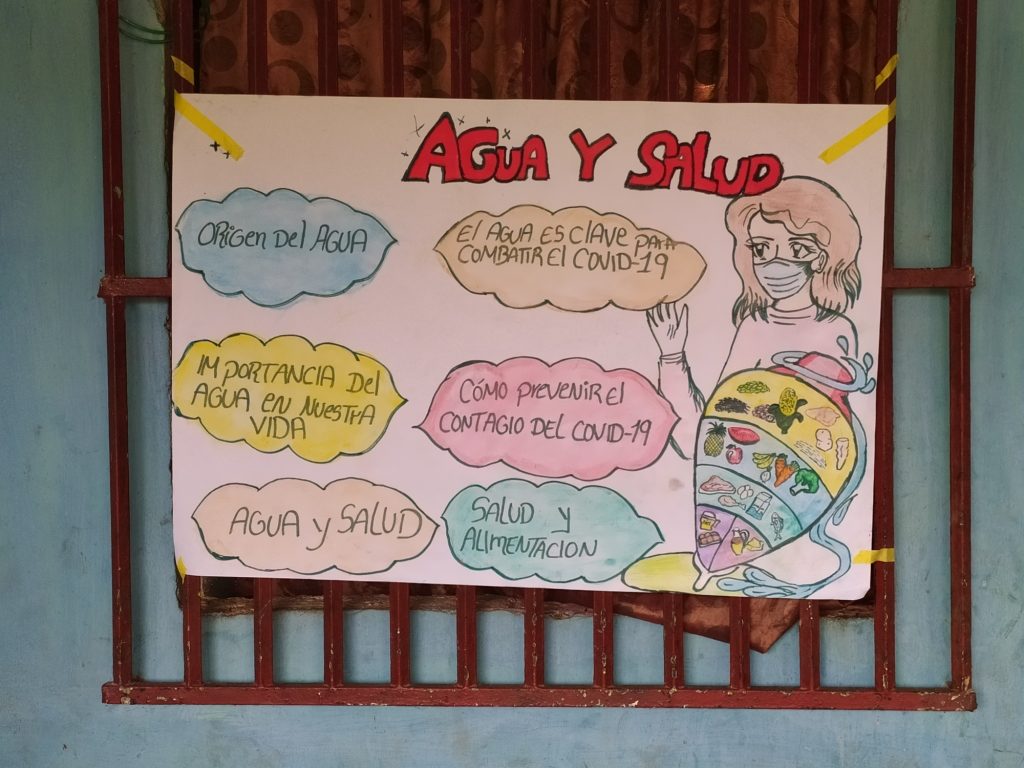 AGUA Y SALUD
ORIGEN DEL AGUA
El AGUA ES CLAVE PARA
COMBATIR El COVID-19
IMPORTANCIA DEL
AGUA EN NUESTRA
VIDA
CÓMO PREVENIR El
CONTAGIO DEL COVID-19
AGUA y SALUD
SALUD y
ALIMENTACION